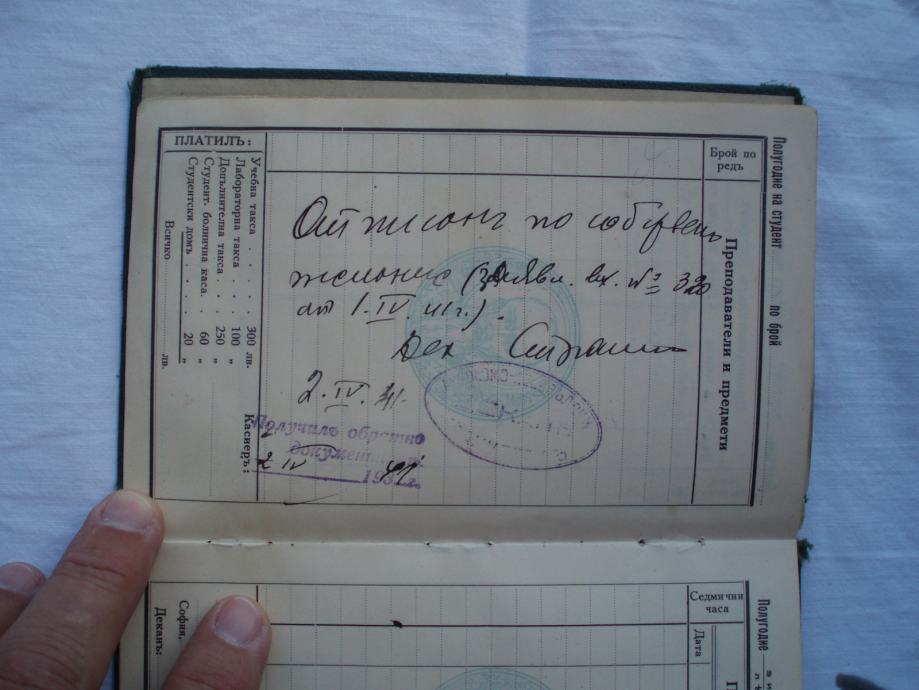 Полугодие на студент по брой
Брой по редъ
Преподаватели и предмети
ПЛАТИЛЪ:
Учебна такса . . . . 300 лв.
Лабораторна такса . . 100 „
Допълнителна такса . . 250 „
Студент. болнична каса. . 60 „
Студентски домъ . . . 20 „
Всичко лв.
Касиеръ:
Отписанъ по собствен
желание (Заявл. вх. № 320
от 1.IV. т.г.).
2.IV.41.
Получилъ обратно
документи
2 IV 1941 г.
Полугодие
Седмични часа
Дата
София,
Деканъ: